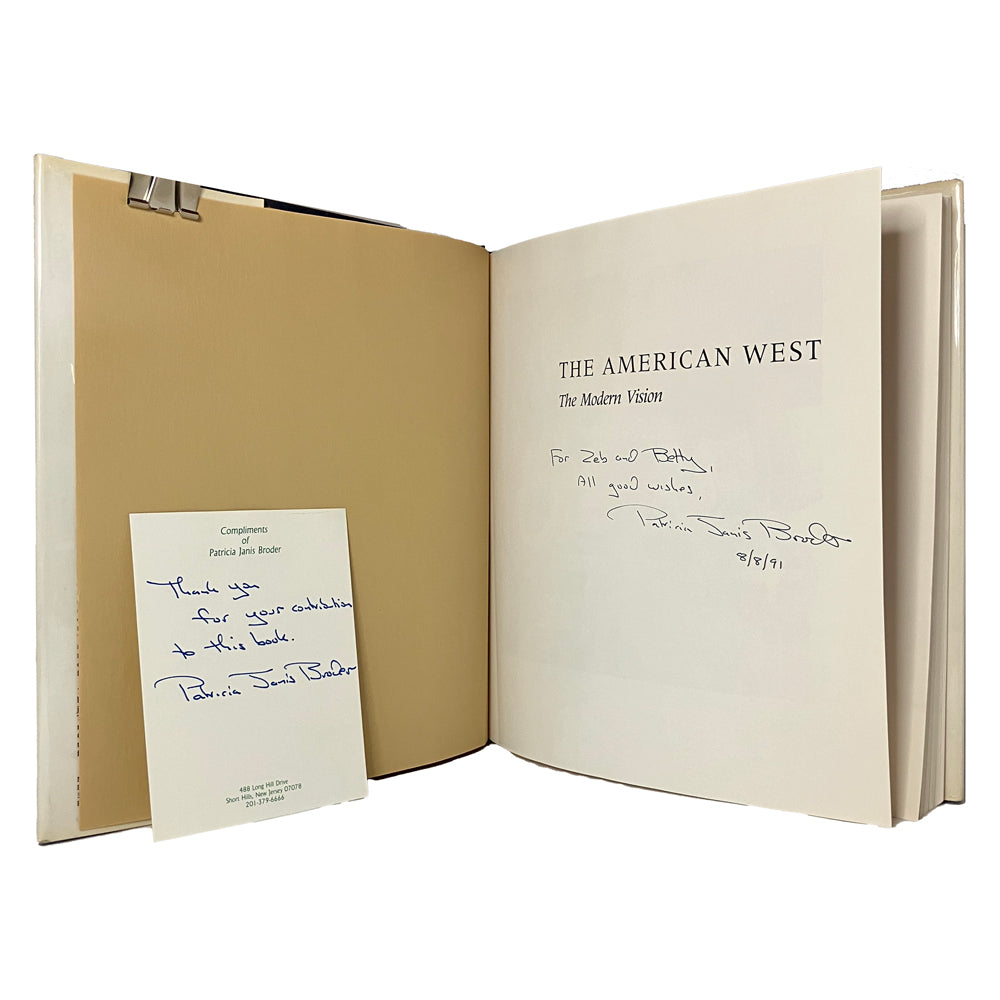 THE AMERICAN WEST
The Modern Vision
For Zeb and Betty,
All good wishes,
Patricia Janis Broder
8/8/91
Compliments
of
Patricia Janis Broder
Thank you
for your contribution
to this book.
Patricia Janis Broder
488 Long Hill Drive
Short Hills, New Jersey 07078
201-379-6666